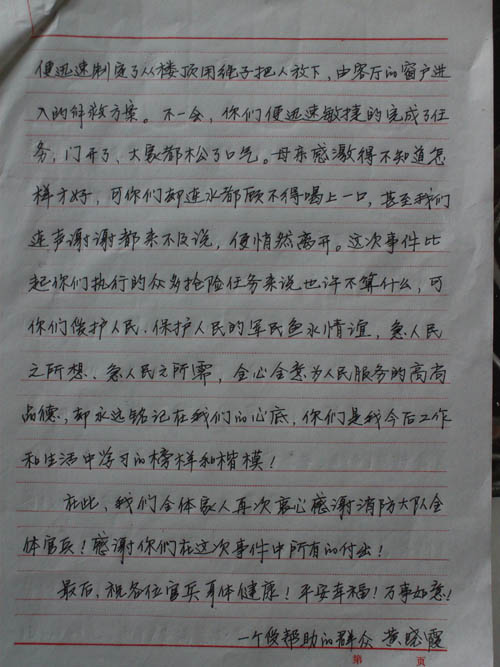 便迅速制定了从楼顶用绳子把人放下，由客厅的窗户进
入的解救方案。不一会，你们便迅速敏捷的完成了任
务，门开了，大家都松了口气。母亲感激得不知道怎
样才好，可你们却连水都顾不得喝上一口，甚至我们
连声谢谢都来不及说，便悄然离开。这次事件比
起你们执行的众多抢险任务来说也许不算什么，可
你们爱护人民、保护人民的军民鱼水情谊，急人民
之所想、急人民之所需，全心全意为人民服务的高尚
品德，却永远铭记在我们的心底，你们是我今后工作
和生活中学习的榜样和楷模！
在此，我们全体家人再次衷心感谢消防大队全
体官兵！感谢你们在这次事件中所有的付出！
最后，祝各位官兵身体健康！平安幸福！万事如意！
一个受帮助的群众 黄晓霞
第 页